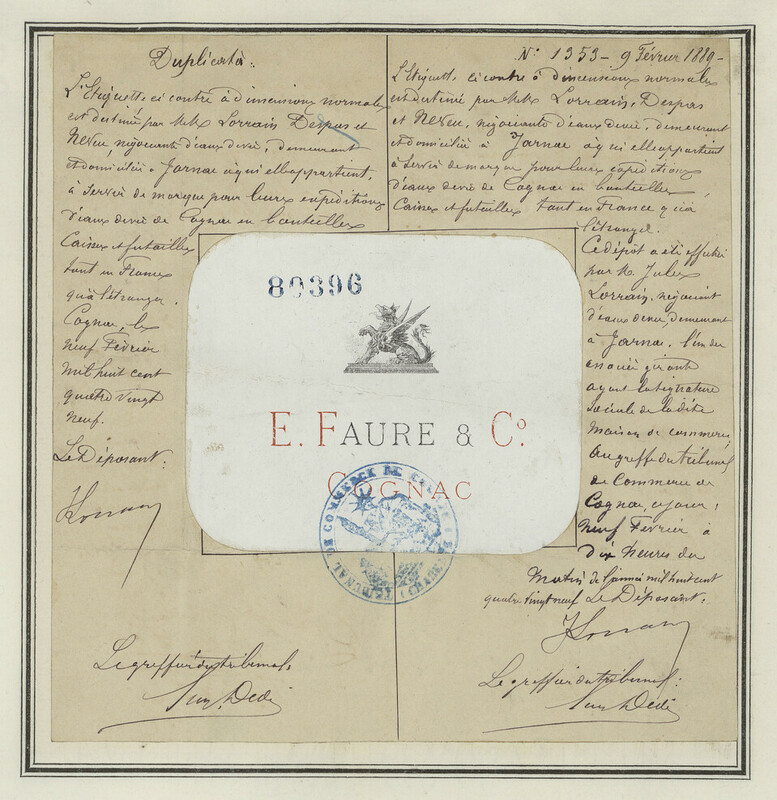 Duplicata :
L'Etiquette ci contre à dimensions normales
est destinée par M.M. Lorrain Despas et
Neveu, négociants d'eaux devie, demeurant
et domiciliés à Jarnac à qui elle appartient,
à servir de marque pour leurs expéditions
d'eaux devie de Cognac en bouteilles
Caisses et futailles
tant en France
qu'à l'étranger.
Cognac, le
neuf Février
mil huit cent
quatre vingt
neuf.
Le Déposant :
Le greffier du tribunal,
N° 1353 - 9 Février 1889 -
L'Etiquette ci contre à dimensions normales
est destinée par M.M. Lorrain, Despas
et Neveu, négociants d'eaux devie, demeurant
et domiciliés à Jarnac à qui elle appartient
à servir de marque pour leurs expéditions
d'eaux devie de Cognac en bouteilles,
Caisses et futailles tant en France qu'à
l'étranger.
Ce dépôt a été effectué
par M. Jules
Lorrain, négociant
d'eaux devie, demeurant
à Jarnac, l'un des
associés gérants
ayant la signature
sociale de la dite
maison de commerce,
au greffe du tribunal
de Commerce de
Cognac, ce jour,
neuf Février à
dix heures du
matin de l'année mil huit cent
quatre vingt neuf. Le Déposant,
Le greffier du tribunal :
80396
E. FAURE & Co.
COGNAC
TRIBUNAL DE COMMERCE DE